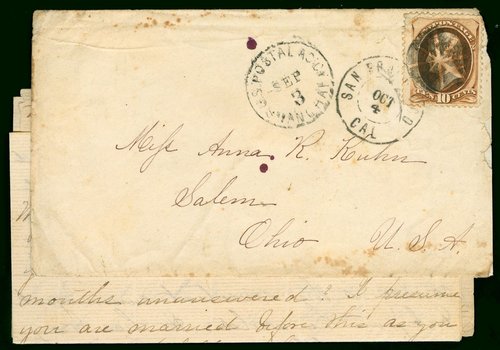 U.S. POSTAL AGCY.
SHANGHAI
SEP
3
SAN FRANCISCO
OCT
4
CAL
U.S. POSTAGE
TEN 10 CENTS
Miss Anna R. Kuhn
Salem
Ohio U. S. A.
months unanswered? I presume
you are married before this as you